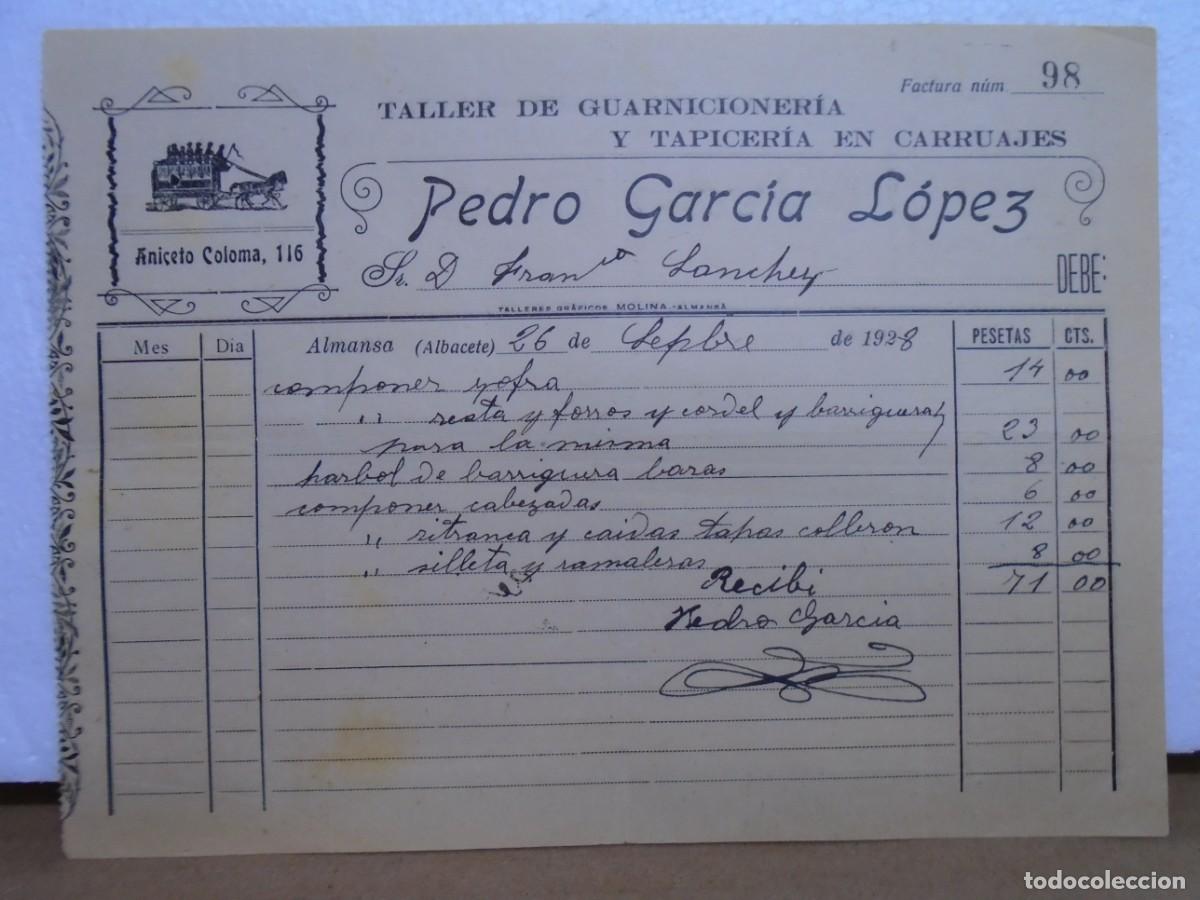 Factura núm 98
TALLER DE GUARNICIONERÍA
Y TAPICERÍA EN CARRUAJES
Pedro García López
Aniceto Coloma, 116
Sr. D Franco Sanchez DEBE:
TALLERES GRÁFICOS MOLINA.-ALMANSA
Mes Día Almansa (Albacete) 26 de Sepbre de 1928 PESETAS CTS.
componer yofra 14 00
,, resta y forros y cordel y barriguera
para la misma 23 00
harbol de barriguera baras 8 00
componer cabezadas 6 00
,, ritranca y caidas tapas colleron 12 00
,, silleta y ramaleras 8 00
Recibi 71 00
Pedro Garcia
todocoleccion